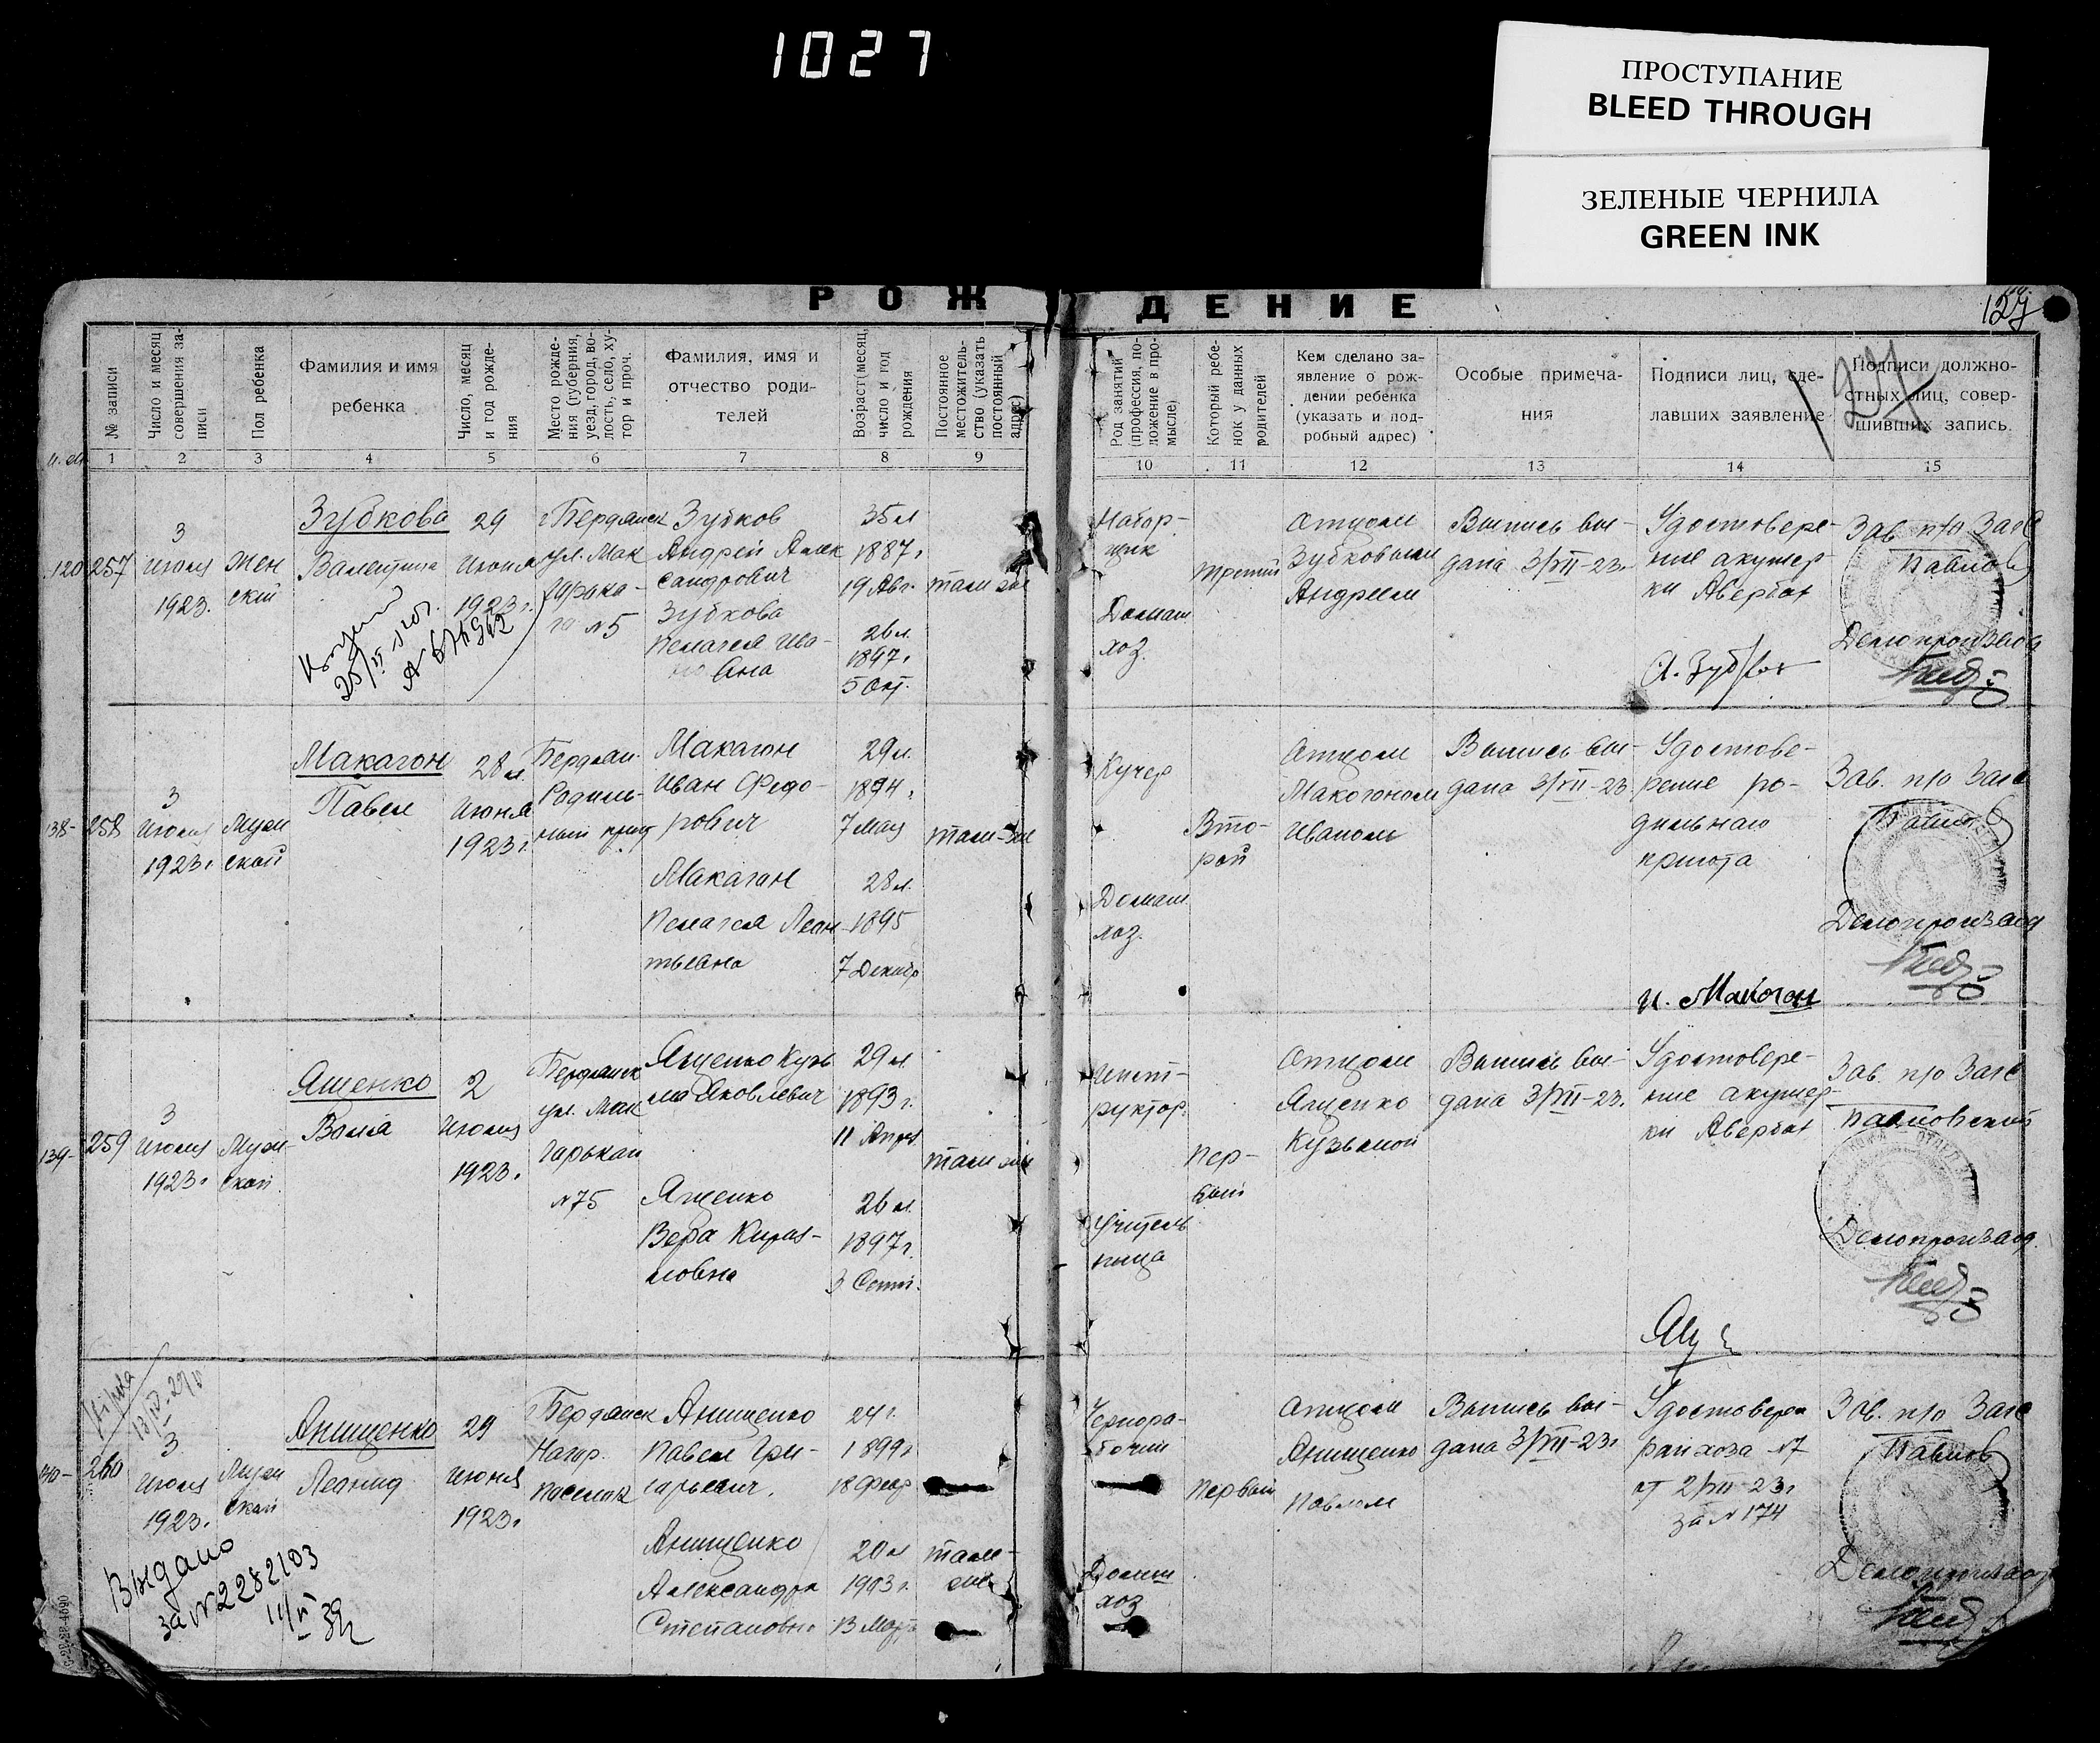 1027
ПРОСТУПАНИЕ
BLEED THROUGH
ЗЕЛЕНЫЕ ЧЕРНИЛА
GREEN INK
РОЖДЕНИЕ
127
№ записи
Число и месяц совершения записи
Пол ребенка
Фамилия и имя ребенка
Число, месяц и год рождения
Место рождения (губерния, уезд, город, волость, село, хутор и проч.
Фамилия, имя и отчество родителей
Возраст (месяц, число и год рождения
Постоянное местожительство (указать постоянный адрес)
Род занятий (профессия, положение в промысле)
Который ребенок у данных родителей
Кем сделано заявление о рождении ребенка (указать и подробный адрес)
Особые примечания
Подписи лиц, сделавших заявление
Подписи должностных лиц, совершивших запись.
1 2 3 4 5 6 7 8 9 10 11 12 13 14 15
257
3 Июля 1923.
Женский
Зубкова
Валентина
29 Июня 1923 г.
г. Бердянск
ул. Мак
№ 5
Зубков
Андрей Алек
сандрович
Зубкова
Пелагея Ива-
35 л
1887 г
19 Авг.
26 л.
1897 г
5 Окт.
Набор-
щик
Домаш
хоз.
третий
Отцом
Зубковым
Андреем
Выпись вы-
дана 3/VII-23.
Удостовере-
ние акушер-
ки Авербах
А. Зубков
Зав. п/о Загс
Павлов
Делопроизвод
258
3 Июля 1923 г
Мужской
Макагон
Павел
28 Июня 1923 г
Бердян.
Родиль-
ный приют
Макагон
Иван Федо-
рович
Макагон
Пелагея Леон-
тьевна
29 л.
1894 г
7 Мая
28 л.
1895
7 Декабр
там-же
Кучер
Домаш
хоз.
Вто-
рой
Отцом
Макогоном
Иваном
Выпись вы-
дана 3/VII-23
Удостове-
рение ро-
дильного
приюта
И. Макогон
Зав. п/о Загс
Делопроизвод
259
3 Июля 1923 г
Мужской
Ященко
2 Июля 1923 г.
Бердянск
ул. Мак
Горькаго
№ 75
Ященко Кузь
ма Яковлевич
Ященко
Вера Кирил-
ловна
29 л.
1893 г.
11 Апрел
26 л.
1897 г.
3 Сент.
там же
Инст-
руктор
Учитель
ница
Пер-
вый
Отцом
Ященко
Кузьмой
Выпись вы-
дана 3/VII-23.
Удостовере-
ние акушер-
ки Авербах
Зав. п/о Загс
Павловский
Делопроизвод.
260
3 Июля 1923.
Мужской
Анищенко
Леонид
29 Июня 1923 г
Бердянск
Нагор.
Поселок
Анищенко
Павел Гри-
горьевич.
Анищенко
Александра
Степановна
24 г.
1899 г
18 Февр
20 л
1903 г.
13 Март
там-
же
Чернора-
бочий
Домаш
хоз
Первый
Отцом
Анищенко
Павлом
Выпись вы-
дана 3/VII-23 г
Удостоверен
райхоза № 7
от 2/VII-23 г
за № 174
Зав. п/о Загс
Павлов
Делопроизвод
Выдано
за № 2282103